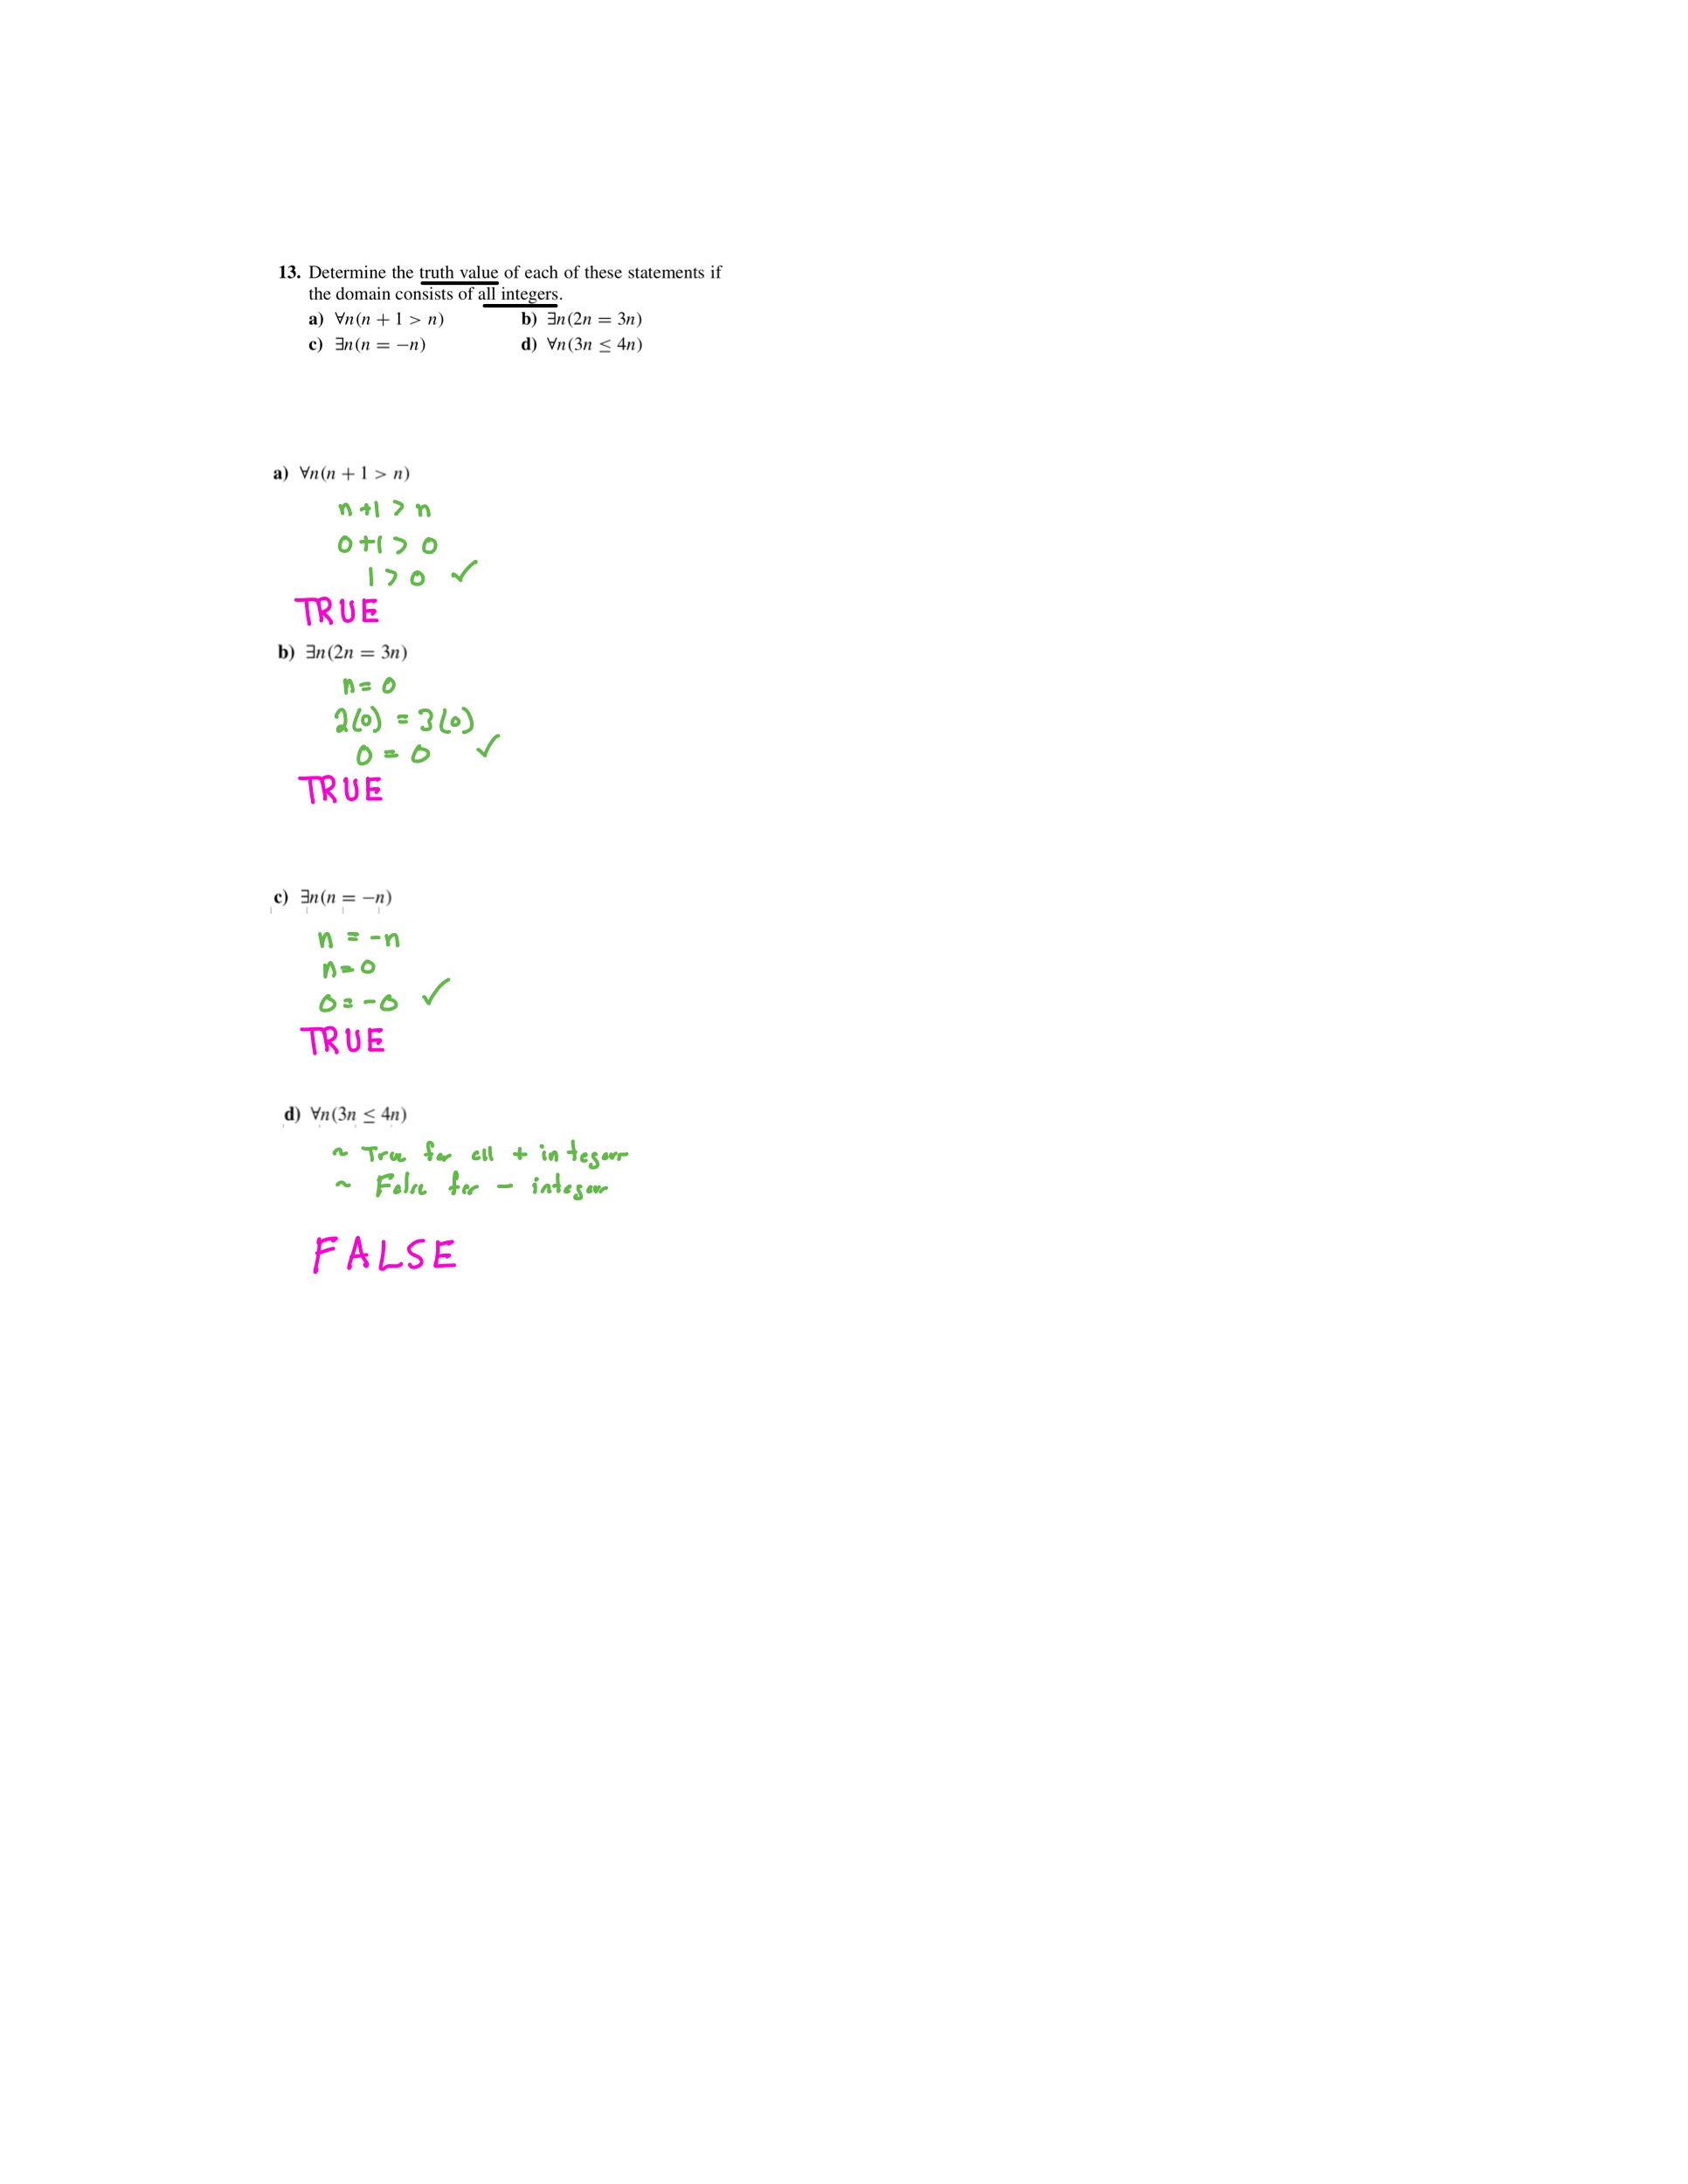 13. Determine the truth value of each of these statements if
the domain consists of all integers.
a) ∀n(n + 1 > n) b) ∃n(2n = 3n)
c) ∃n(n = −n) d) ∀n(3n ≤ 4n)
a) ∀n(n + 1 > n)
n+1 > n
0+1 > 0
1 > 0 ✓
TRUE
b) ∃n(2n = 3n)
n = 0
2(0) = 3(0)
0 = 0 ✓
TRUE
c) ∃n(n = −n)
n = -n
n=0
0 = -0 ✓
TRUE
d) ∀n(3n ≤ 4n)
~ True for all + integers
~ False for - integers
FALSE